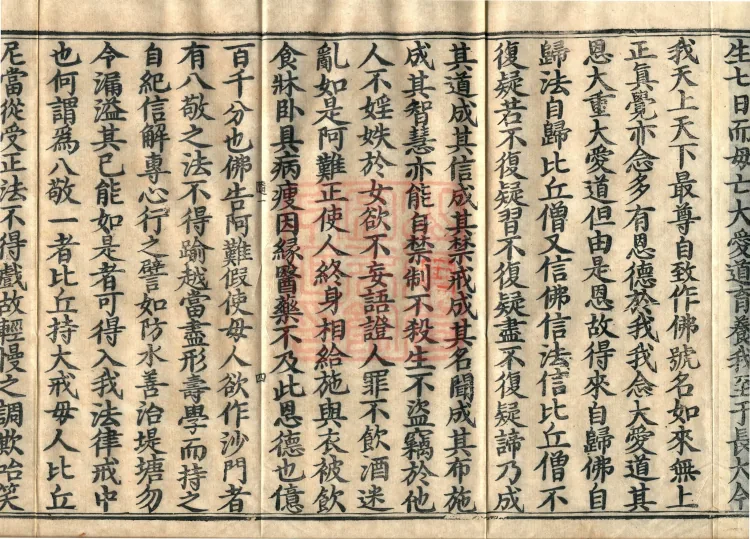 生七日而母亡大愛道育養我至于長大今
我天上天下最尊自致作佛號名如來無上
正真覺亦念多有恩德於我我念大愛道其
恩大重大愛道但由是恩故得來自歸佛自
歸法自歸比丘僧又信佛信法信比丘僧不
復疑若不復疑習不復疑盡不復疑諦乃成
其道成其信成其禁戒成其名聞成其布施
成其智慧亦能自禁制不殺生不盜竊於他
人不婬妷於女欲不妄語證人罪不飲酒迷
亂如是阿難正使人終身相給施與衣被飲
食牀卧具病瘦因緣醫藥不及此恩德也億
四
百千分也佛告阿難假使母人欲作沙門者
有八敬之法不得踰越當盡形壽學而持之
自紀信解專心行之譬如防水善治堤塘勿
令漏溢其已能如是者可得入我法律戒中
也何謂為八敬一者比丘持大戒母人比丘
尼當從受正法不得戲故輕慢之調欺咍笑